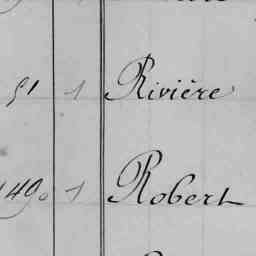 51 1 Rivière
490 1 Robert